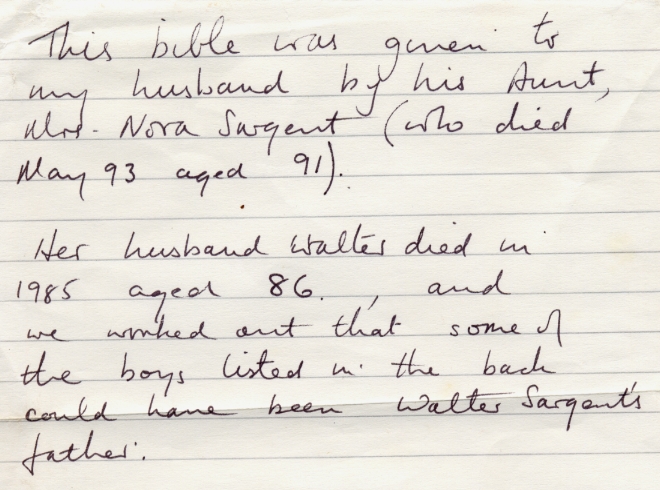 This bible was given to
my husband by his Aunt,
Mrs. Nora Sargent (who died
May 93 aged 91).
Her husband Walter died in
1985 aged 86. , and
we worked out that some of
the boys listed in the back
could have been Walter Sargent's
father.